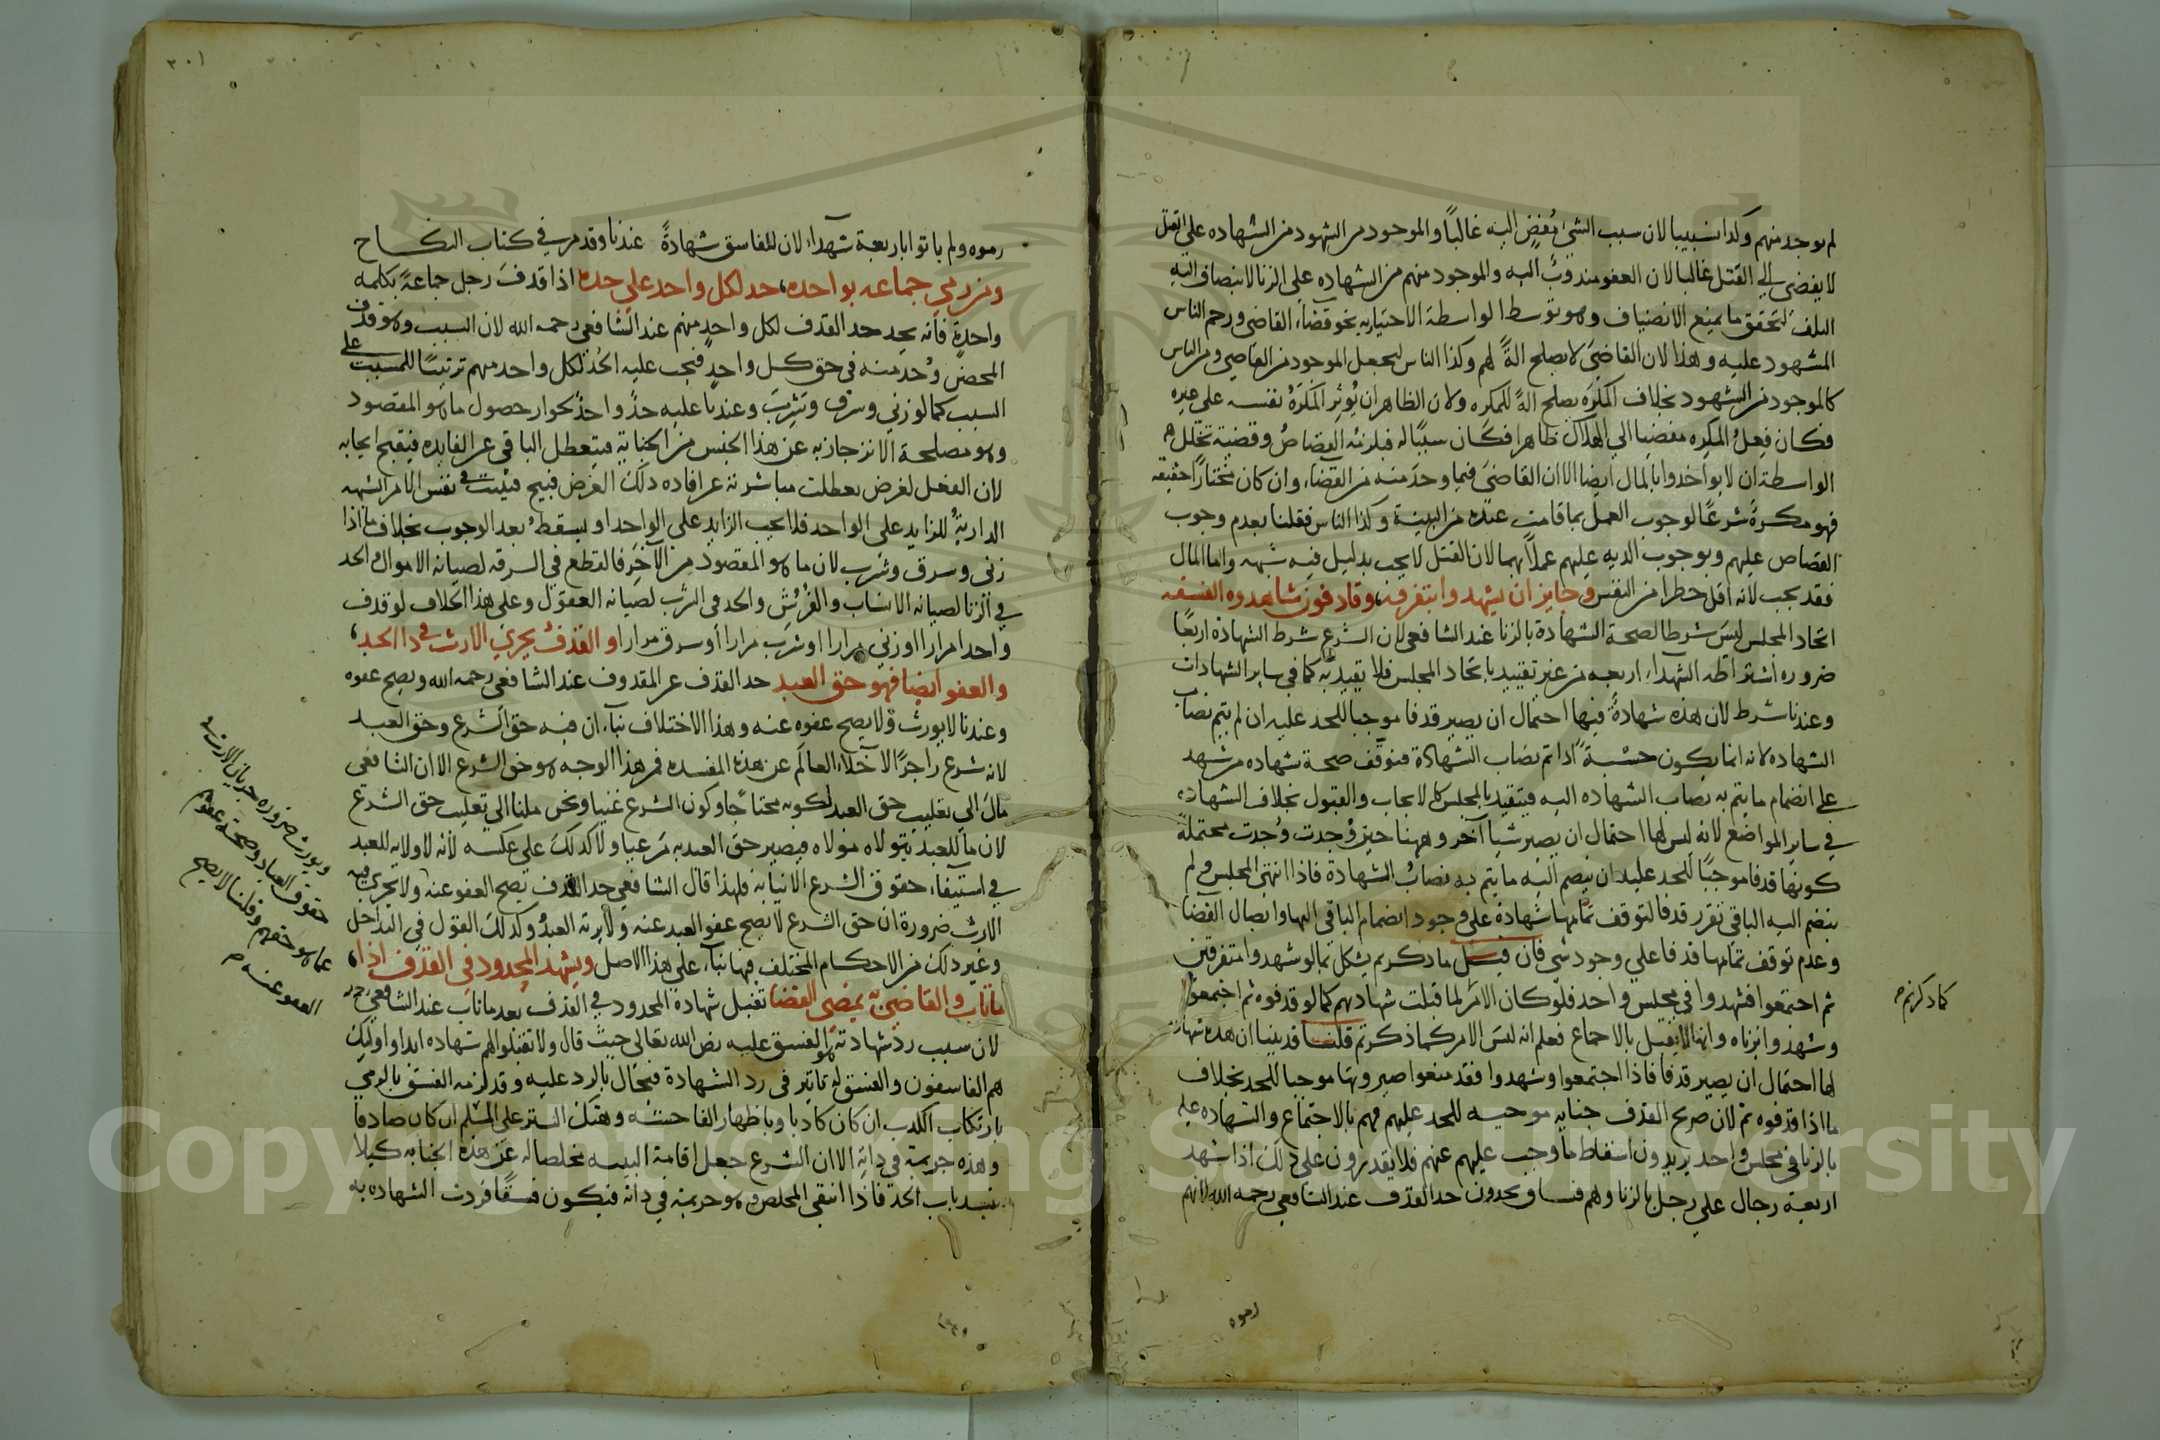 لم يوجد منهم وكذا تسبيبا لان سبب الشي مُفضٍ اليه غالبًا والموجود من الشهود من الشهاده على القتل
لا يفضي الي القتل غالبا لان العفو مندوبٌ اليه والموجود منهم من الشهاده علي الزنا لا يتصاف اليه
التلف لتحقق ما يمنع الانضياف وهو توسط الواسطة الاختياريه نحو قضاء القاضي ورجم الناس
المشهود عليه وهذا لان القاضي لا يصلح الةً لهم وكذا الناس ليجعل الموجود من القاضي ومن الناس
كالموجود من الشهود بخلاف المكرَه يصلح الةً للمكره ولان الظاهر ان يُوثِر المكرَهُ نفسه على غيره
فكان فِعلُ المكرِه مفضيا الي الهلاك ظاهرا فكان سببًا له فيلزمه القصاصُ وقضية تخلل هـ
الواسطة ان لا يواخذوا بالمال ايضا الا ان القاضي فيما وجد منه من القضاء وان كان مختارًا حقيقه
فهو مكرهٌ شرعًا لوجوب العمل بما قامت عنده من البينة وكذا الناس فقلنا بعدم وجوب
القصاص عليهم وبوجوب الديه عليهم عملاً بهما لان القتل لا يجب بدليل فيه شبهه واما المال
فقد يجب لانه اقل خطرا من النفس وجايز ان يشهدوا بتفرقه، وقاذفون شاهدوه الفسقه
اتحاد المجلس ليس شرطا لصحة الشهادة بالزنا عند الشافعي لان الشرع شرط الشهادة اربعًا
ضروره اشتراطه الشهداء اربعه من غير تقييد باتحاد المجلس فلا يقيد به كما في ساير الشهادات
وعندنا شرط لان هذه شهادةٌ فيها احتمال ان يصير قذفا موجبا للحد عليه ان لم يتم نصاب
الشهاده لانه انما يكون حسْبةً اذا تم نصاب الشهادة فتوقف صحة شهاده من شهد
علي انضمام ما يتم به نصاب الشهاده اليه فيتقيد بالمجلس كالايجاب والقبول بخلاف الشهاده
في ساير المواضع لانه ليس لها احتمال ان يصير شيا آخر وههنا حين وُجدت وُجدت محتملة
كونها قذفا موجبًا للحد عليه ان ينضم اليه ما يتم به نصابُ الشهادة فاذا انتهى المجلس ولم
ينضم اليه الباقي تقرر قذفا لتوقف تمامها شهادة علي وجود انضمام الباقي اليها واتصال القضا
وعدم توقف تمامها قذفا علي وجود شي فان قيل ما ذكرتم يشكل بما لو شهدوا متفرقين
ثم اجتمعوا فشهدوا في مجلس واحد فلو كان الامر لما قبلت شهادتهم كما لو قذفوه ثم اجتمعوا
وشهدوا بزناه وانها لا تقبل بالاجماع فعلم انه ليس الامر كما ذكرتم قلنا قد بينا ان هذه شهادة
لها احتمال ان يصير قذفا فاذا اجتمعوا وشهدوا فقد منعوا صيرورتها موجبا للحد بخلاف
ما اذا قذفوه ثم لان صريح القذف جنايه موجبه للحد عليهم فهم بالاجتماع والشهاده عليه
بالزنا في مجلس واحد يريدون اسقاط ما وجب عليهم عنهم فلا يقدرون على ذلك اذا شهد
اربعة رجال علي رجل بالزنا وهم فساق يحدون حد القذف عند الشافعي رحمه الله لانهم
كما ذكرتم
رموه
٣٠١
رموه ولم ياتوا باربعة شهداء لان للفاسق شهادةً عندنا وقد مر في كتاب النكاح
ومن رمي جماعه بواحده، حد لكل واحد علي حده اذا قذفَ رجل جماعةً بكلمه
واحدةٍ فانه يحد حد القذف لكل واحدٍ منهم عند الشافعي رحمه الله لان السبب وهو قذف
المحصن وُجد منه في حق كل واحدٍ فيجب عليه الحدُّ لكل واحد منهم ترتيبًا للمسبب على
السبب كما لو زني وسرق وشرب وعندنا عليه حدٌّ واحدٌ لجواز حصول ما هو المقصود
وهو مصلحة الانزجار به عن هذا الجنس من الجناية فيتعطل الباقي عن الفايده فيقبح ايجابه
لان الفعل لغرض تعطلت مباشرته عن افاده ذلك الغرض قبيح فيثبت في نفس الامر الشبهه
الداريةُ للزايد على الواحد فلا يجب الزايد على الواحد او يسقط بعد الوجوب بخلاف ما اذا
زنى وسرق وشرب لان ما هو المقصود من الآخَر فالقطع في السرقه لصيانة الاموال والحد
في الزنا لصيانه الانساب والفُرُش والحد في الشرب لصيانه العقول وعلى هذا الخلاف لو قذف
واحدا مرارا او زني مرارا او شرب مرارا او سرق مرارا والقذفُ يجري الارث في ذا الحد،
والعفو ايضا فهو حق العبد حد القذف عن المقذوف عند الشافعي رحمه الله ويصح عفوه
وعندنا لا يورث ولا يصح عفوه عنه وهذا الاختلاف بناء ان فيه حق الشرع وحق العبد
لانه شرع زاجرًا لاخلاء العالَم عن هذه المفسده فمن هذا الوجه هو حق الشرع الا ان الشافعي
مالَ الي تغليب حق العبد لكونه محتاجًا وكون الشرع غنيا ونحن ملنا الي تغليب حق الشرع
لان ما للعبد يتولاه مولاه فيصير حق العبد به مَرعيا ولا كذلك على عكسه لانه لا ولايه للعبد
في استيفاء حقوق الشرع الا نيابة فلهذا قال الشافعي حد القذف يصح العفو عنه ولا يجري فيه
الارث ضرورة ان حق الشرع لا يصح عفو العبد عنه ولا يرثه العبدُ وكذلك القول في التداخل
وغير ذلك من الاحكام المختلف فيها بناء على هذا الاصل ويشهد المحدود في القذف اذا،
ماتاب والقاضي به يمضي القضا تقبل شهادة المحدود في القذف بعد ما تاب عند الشافعي رحمه
لان سبب رد شهادته هو الفسق عليه نص الله تعالى حيث قال ولا تقبلوا لهم شهاده ابدا واوليك
هم الفاسقون والفسق له تاثير في رد الشهادة فيحال بالرد عليه وقد لزمه الفسق بالرمي
بارتكاب الكذب ان كان كاذبا وباظهار الفاحشة وهتك الستر على المسلم ان كان صادقا
وهذه جريمة في ذاته الا ان الشرع جعل اقامة البينه مخلصا له عن هذه الجنايه كيلا
ينسد باب الحد فاذا انتفى المخلص وهو جريمة في ذاته فيكون فسقًا فردت الشهاده به
ويورث ضرورة جريان الارث في
حقوق العباد وصحة عفوهم
عما هو حقهم وقلنا لا يصح
العفو عنه